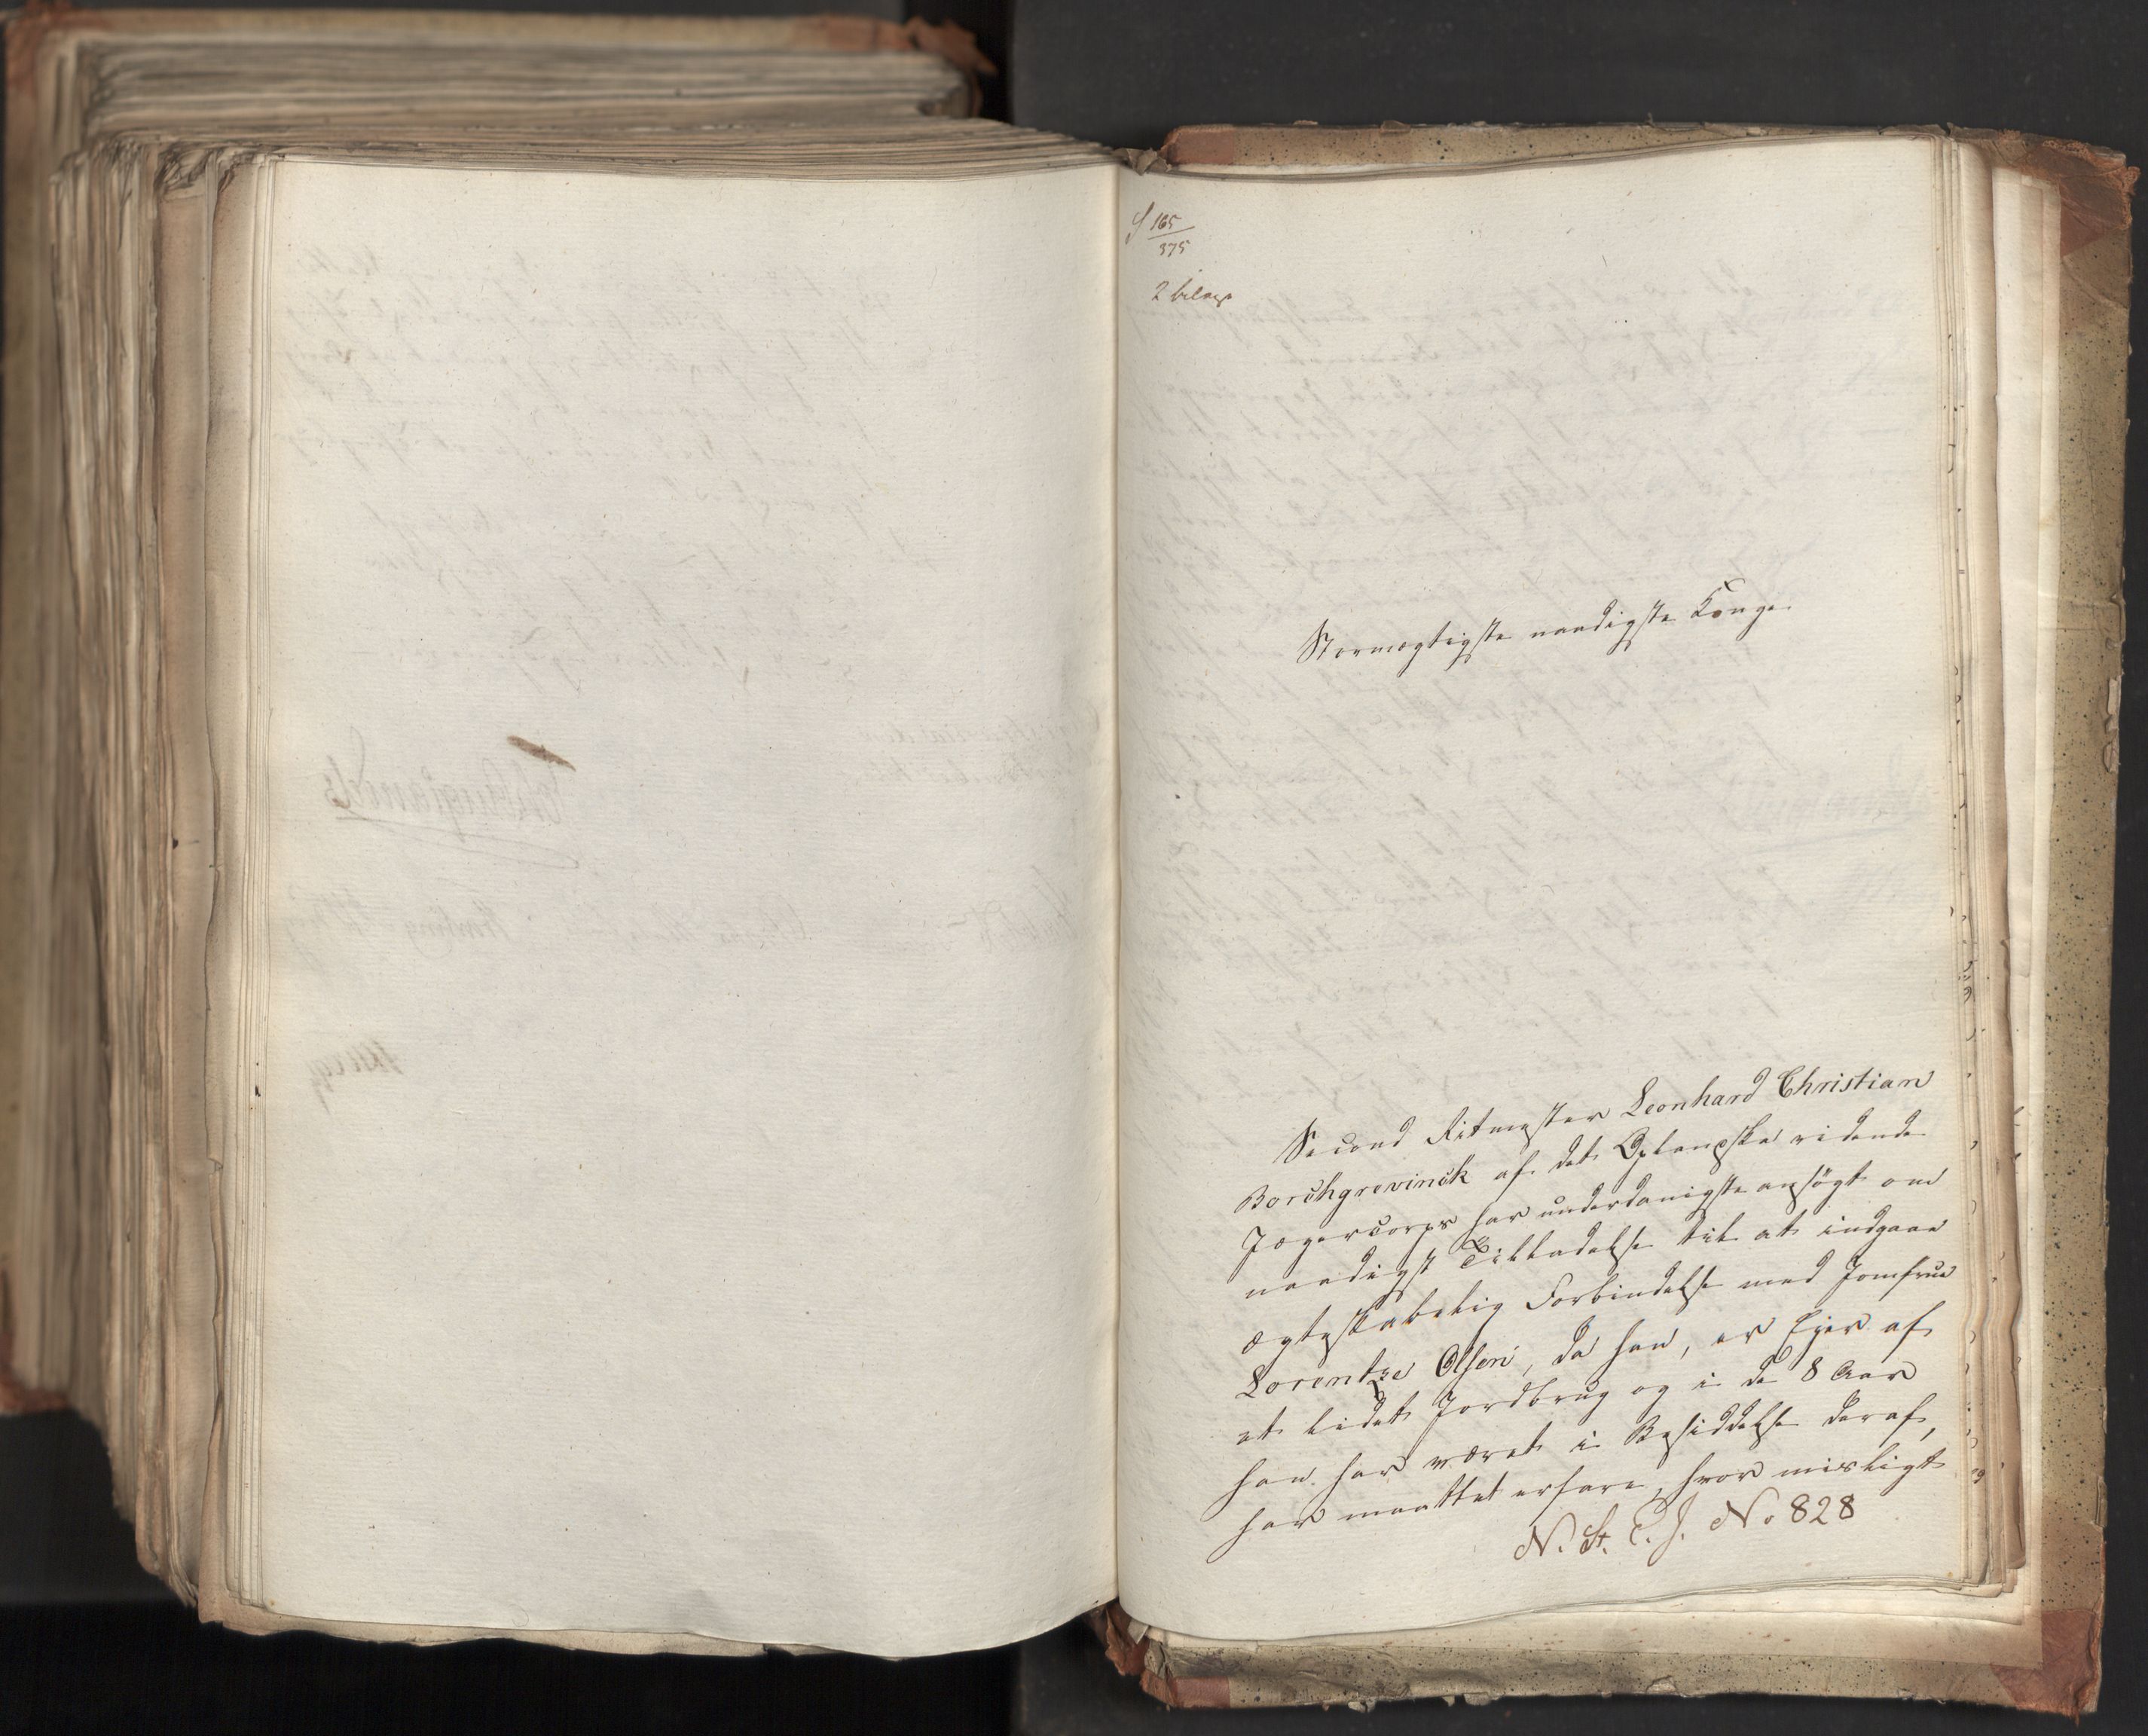 165
375
2 bilage
Stormægtigste naadigste Konge
Second Ritmester Leonhard Christian
Borchgrevinck af det Oplandske ridende
Jægercorps har underdanigst ansögt om
naadigst Tilladelse til at indgaae
ægteskabelig Forbindelse med Jomfrue
Lorentze Olsen, da han, er Ejer af
et lidet Jordbrug og i de 8 Aar
han har været i Besiddelse deraf,
har maattet erfare, hvor misligt
N. St. E. J. No 828